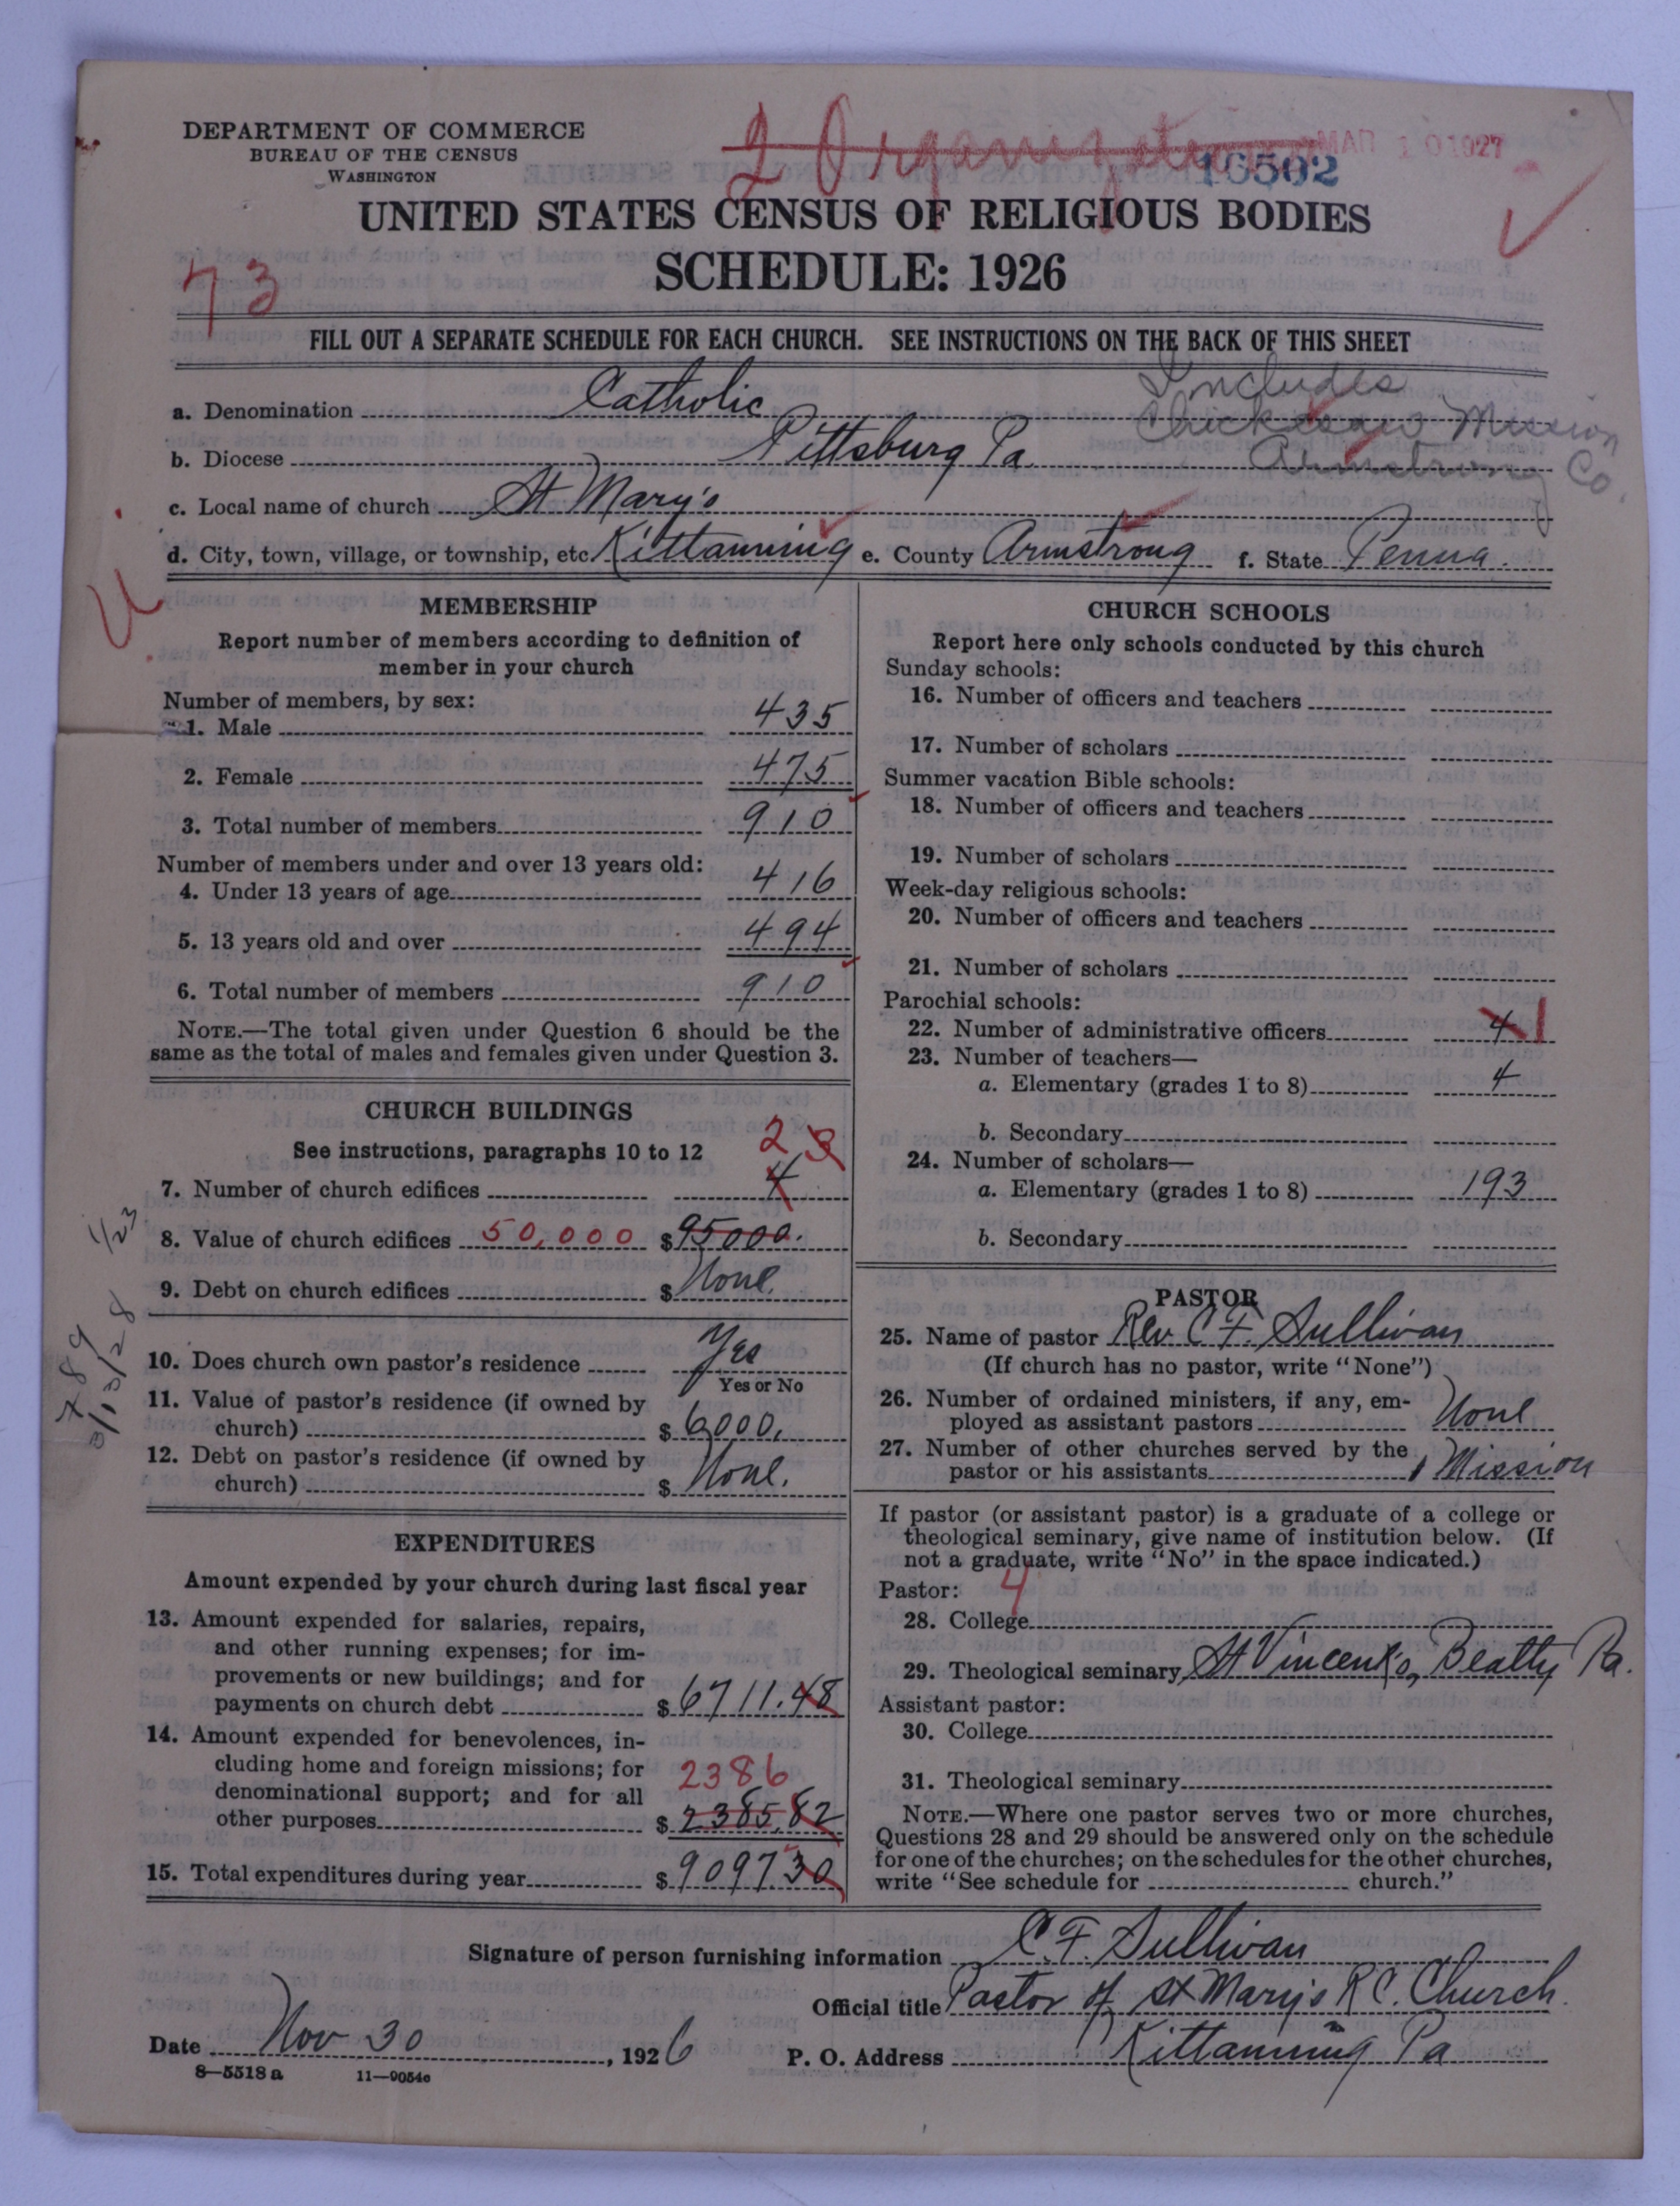 DEPARTMENT OF COMMERCE
BUREAU OF THE CENSUS
WASHINGTON
2 Organizations
MAR 10 1927
16502
UNITED STATES CENSUS OF RELIGIOUS BODIES
SCHEDULE: 1926
73
FILL OUT A SEPARATE SCHEDULE FOR EACH CHURCH. SEE INSTRUCTIONS ON THE BACK OF THIS SHEET
Includes
Chickasaw Mission
Armstrong Co.
a. Denomination Catholic
b. Diocese Pittsburg Pa.
c. Local name of church St Mary's
d. City, town, village, or township, etc Kittanning e. County Armstrong f. State Penna.
U
MEMBERSHIP
Report number of members according to definition of
member in your church
Number of members, by sex:
1. Male 435
2. Female 475
3. Total number of members 910
Number of members under and over 13 years old:
4. Under 13 years of age 416
5. 13 years old and over 494
6. Total number of members 910
NOTE.—The total given under Question 6 should be the
same as the total of males and females given under Question 3.
CHURCH BUILDINGS
See instructions, paragraphs 10 to 12
2 3
7. Number of church edifices 4
8. Value of church edifices 50,000 $95000.
9. Debt on church edifices $ None.
10. Does church own pastor's residence Yes
Yes or No
11. Value of pastor's residence (if owned by
church) $ 6000.
12. Debt on pastor's residence (if owned by
church) $ None.
1/23
789
3/13/28
EXPENDITURES
Amount expended by your church during last fiscal year
13. Amount expended for salaries, repairs,
and other running expenses; for im-
provements or new buildings; and for
payments on church debt $ 6711.48
14. Amount expended for benevolences, in-
cluding home and foreign missions; for
denominational support; and for all
2386
other purposes $ 2385.82
15. Total expenditures during year $ 9097.30
CHURCH SCHOOLS
Report here only schools conducted by this church
Sunday schools:
16. Number of officers and teachers
17. Number of scholars
Summer vacation Bible schools:
18. Number of officers and teachers
19. Number of scholars
Week-day religious schools:
20. Number of officers and teachers
21. Number of scholars
Parochial schools:
22. Number of administrative officers 4 1
23. Number of teachers—
a. Elementary (grades 1 to 8) 4
b. Secondary
24. Number of scholars—
a. Elementary (grades 1 to 8) 193
b. Secondary
PASTOR
25. Name of pastor Rev. C F. Sullivan
(If church has no pastor, write "None")
26. Number of ordained ministers, if any, em-
ployed as assistant pastors None
27. Number of other churches served by the
pastor or his assistants 1 Mission
If pastor (or assistant pastor) is a graduate of a college or
theological seminary, give name of institution below. (If
not a graduate, write "No" in the space indicated.)
Pastor: 4
28. College
29. Theological seminary St Vincent's, Beatty Pa.
Assistant pastor:
30. College
31. Theological seminary
NOTE.—Where one pastor serves two or more churches,
Questions 28 and 29 should be answered only on the schedule
for one of the churches; on the schedules for the other churches,
write "See schedule for church."
Signature of person furnishing information C. F. Sullivan
Official title Pastor of St Mary's R C. Church.
Date Nov 30, 1926 P. O. Address Kittanning Pa
8—5518a 11—9054c